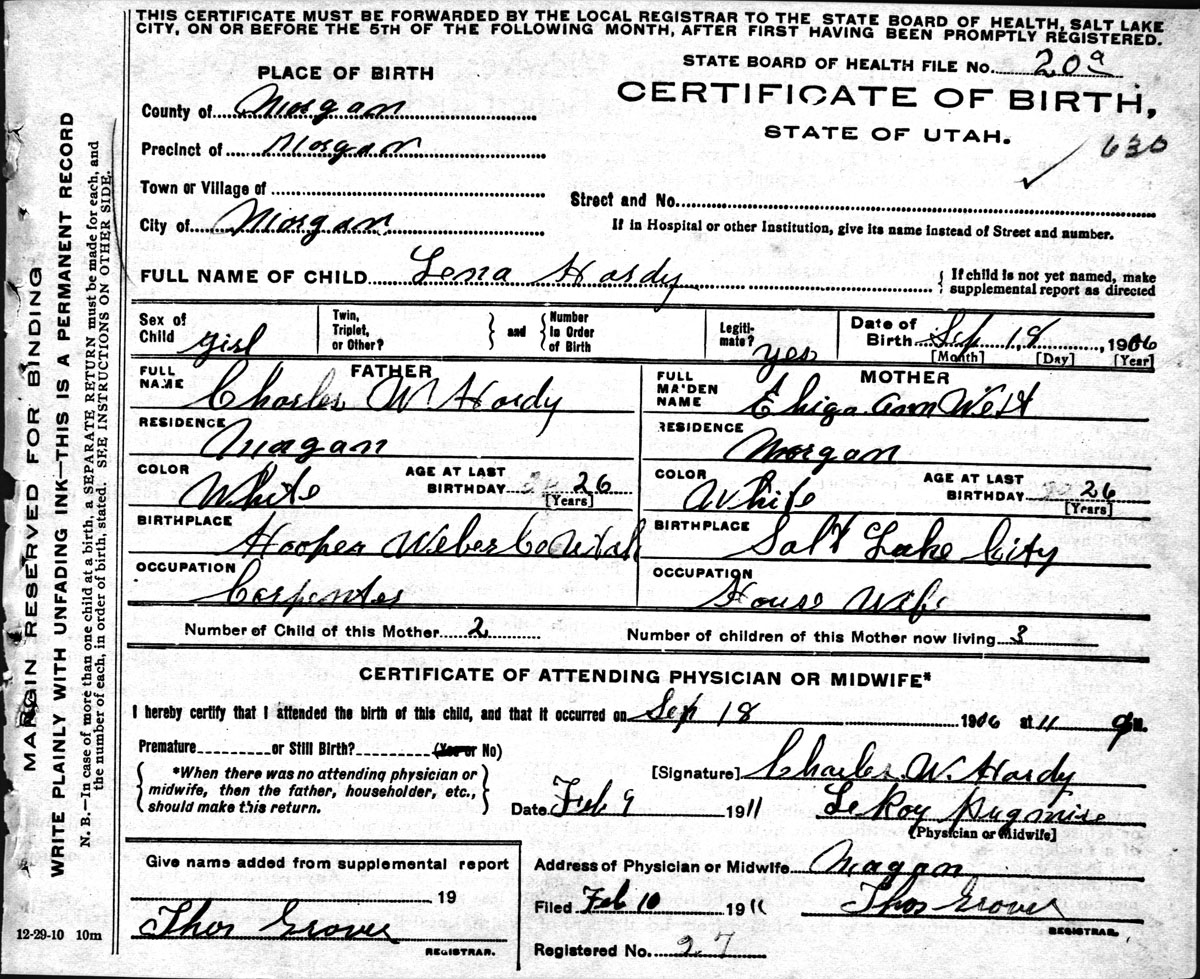 THIS CERTIFICATE MUST BE FORWARDED BY THE LOCAL REGISTRAR TO THE STATE BOARD OF HEALTH, SALT LAKE
CITY, ON OR BEFORE THE 5TH OF THE FOLLOWING MONTH, AFTER FIRST HAVING BEEN PROMPTLY REGISTERED.
STATE BOARD OF HEALTH FILE No. 20a
CERTIFICATE OF BIRTH,
STATE OF UTAH.
630
PLACE OF BIRTH
County of Morgan
Precinct of Morgan
Town or Village of
City of Morgan
Street and No.
If in Hospital or other Institution, give its name instead of Street and number.
FULL NAME OF CHILD Lena Hardy
{ If child is not yet named, make
supplemental report as directed
Sex of Child girl
Twin, Triplet, or Other? } and { Number in Order of Birth
Legitimate? yes
Date of Birth Sep 18, 1906
[Month] [Day] [Year]
FATHER
FULL NAME Charles W. Hardy
RESIDENCE Morgan
COLOR White
AGE AT LAST BIRTHDAY 26
[Years]
BIRTHPLACE Hooper Weber Co Utah
OCCUPATION Carpenter
MOTHER
FULL MAIDEN NAME Ann West
RESIDENCE Morgan
COLOR White
AGE AT LAST BIRTHDAY 26
[Years]
BIRTHPLACE Salt Lake City
OCCUPATION House Wife
Number of Child of this Mother 2
Number of children of this Mother now living 3
CERTIFICATE OF ATTENDING PHYSICIAN OR MIDWIFE*
I hereby certify that I attended the birth of this child, and that it occurred on Sep 18 1906 at 11 M.
Premature or Still Birth? (Yes or No)
{ *When there was no attending physician or
midwife, then the father, householder, etc.,
should make this return. }
[Signature] Charles W. Hardy
Date Feb 9 1911
LeRoy Pugmire
[Physician or Midwife]
Give name added from supplemental report
19
Thos Grover
REGISTRAR.
Address of Physician or Midwife Morgan
Filed Feb 10 1911
Thos Grover
REGISTRAR.
Registered No. 27
12-29-10 10m
MARGIN RESERVED FOR BINDING
WRITE PLAINLY WITH UNFADING INK—THIS IS A PERMANENT RECORD
N. B.—In case of more than one child at a birth, a SEPARATE RETURN must be made for each, and
the number of each, in order of birth, stated. SEE INSTRUCTIONS ON OTHER SIDE.